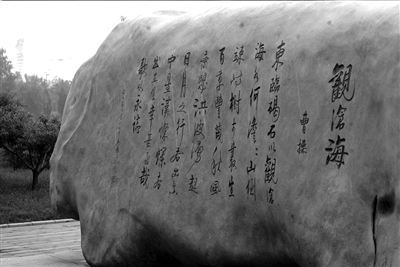 觀滄海
曹操
東臨碣石以觀滄
海水何澹々山島
竦峙樹木叢生
百草豐茂秋風
蕭瑟洪波湧起
日月之行若出其
中星漢燦爛若
出其里幸甚至哉
歌以詠志